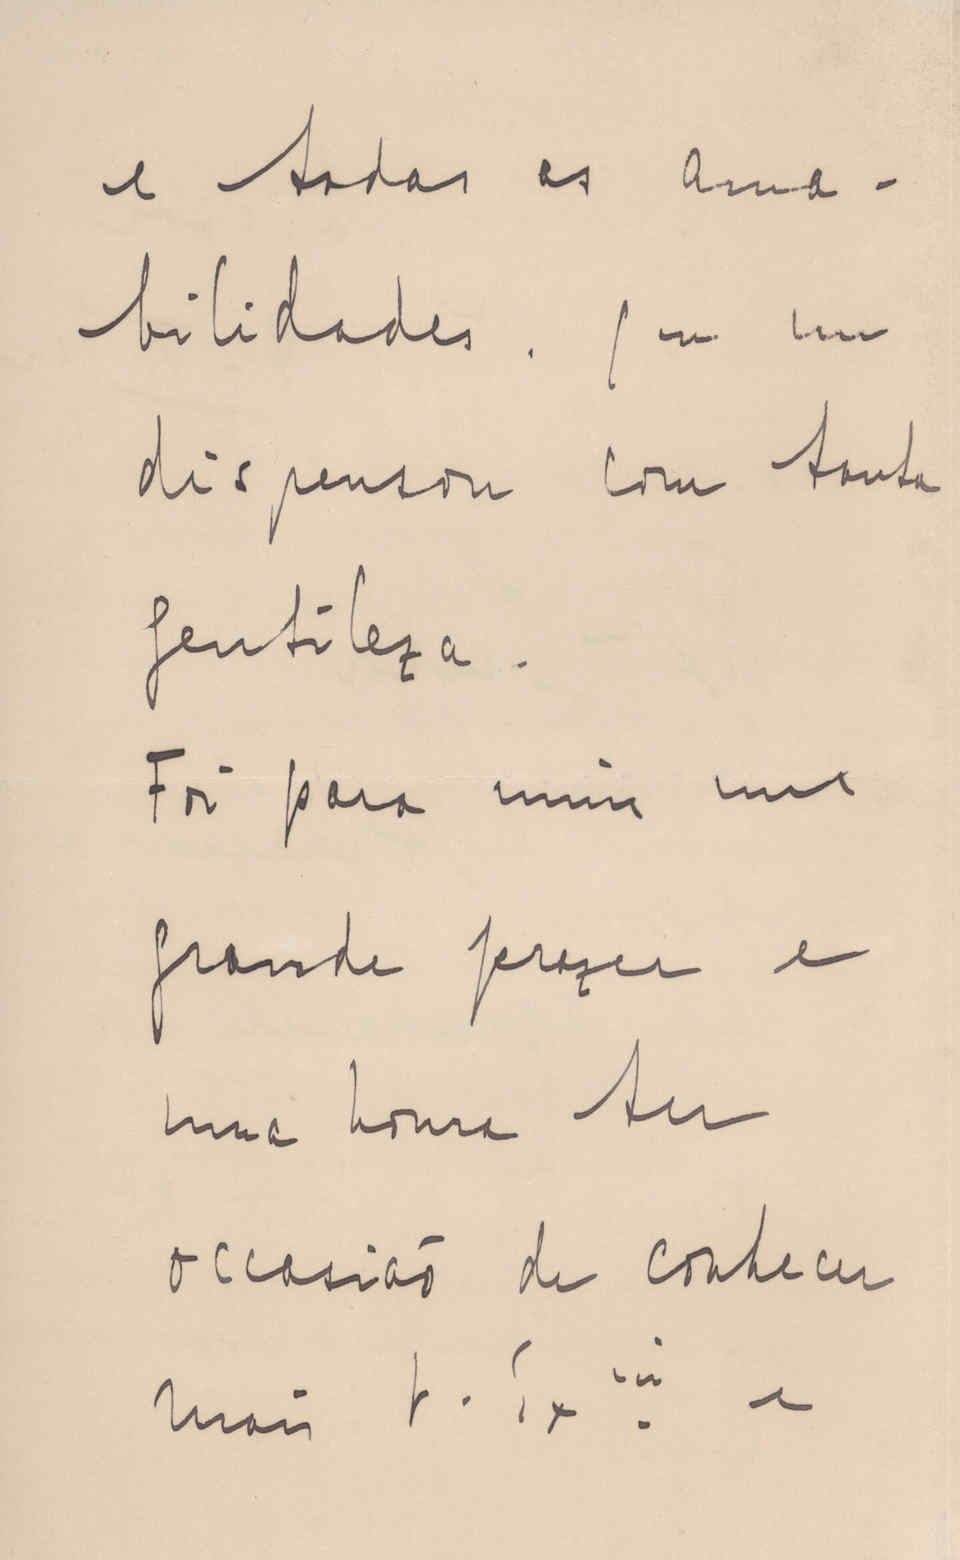 e todas as ama-
bilidades, que me
dispensou com tanta
gentileza.
Foi para mim um
grande prazer e
uma honra ter
occasião de conhecer
mais V. Ex
e